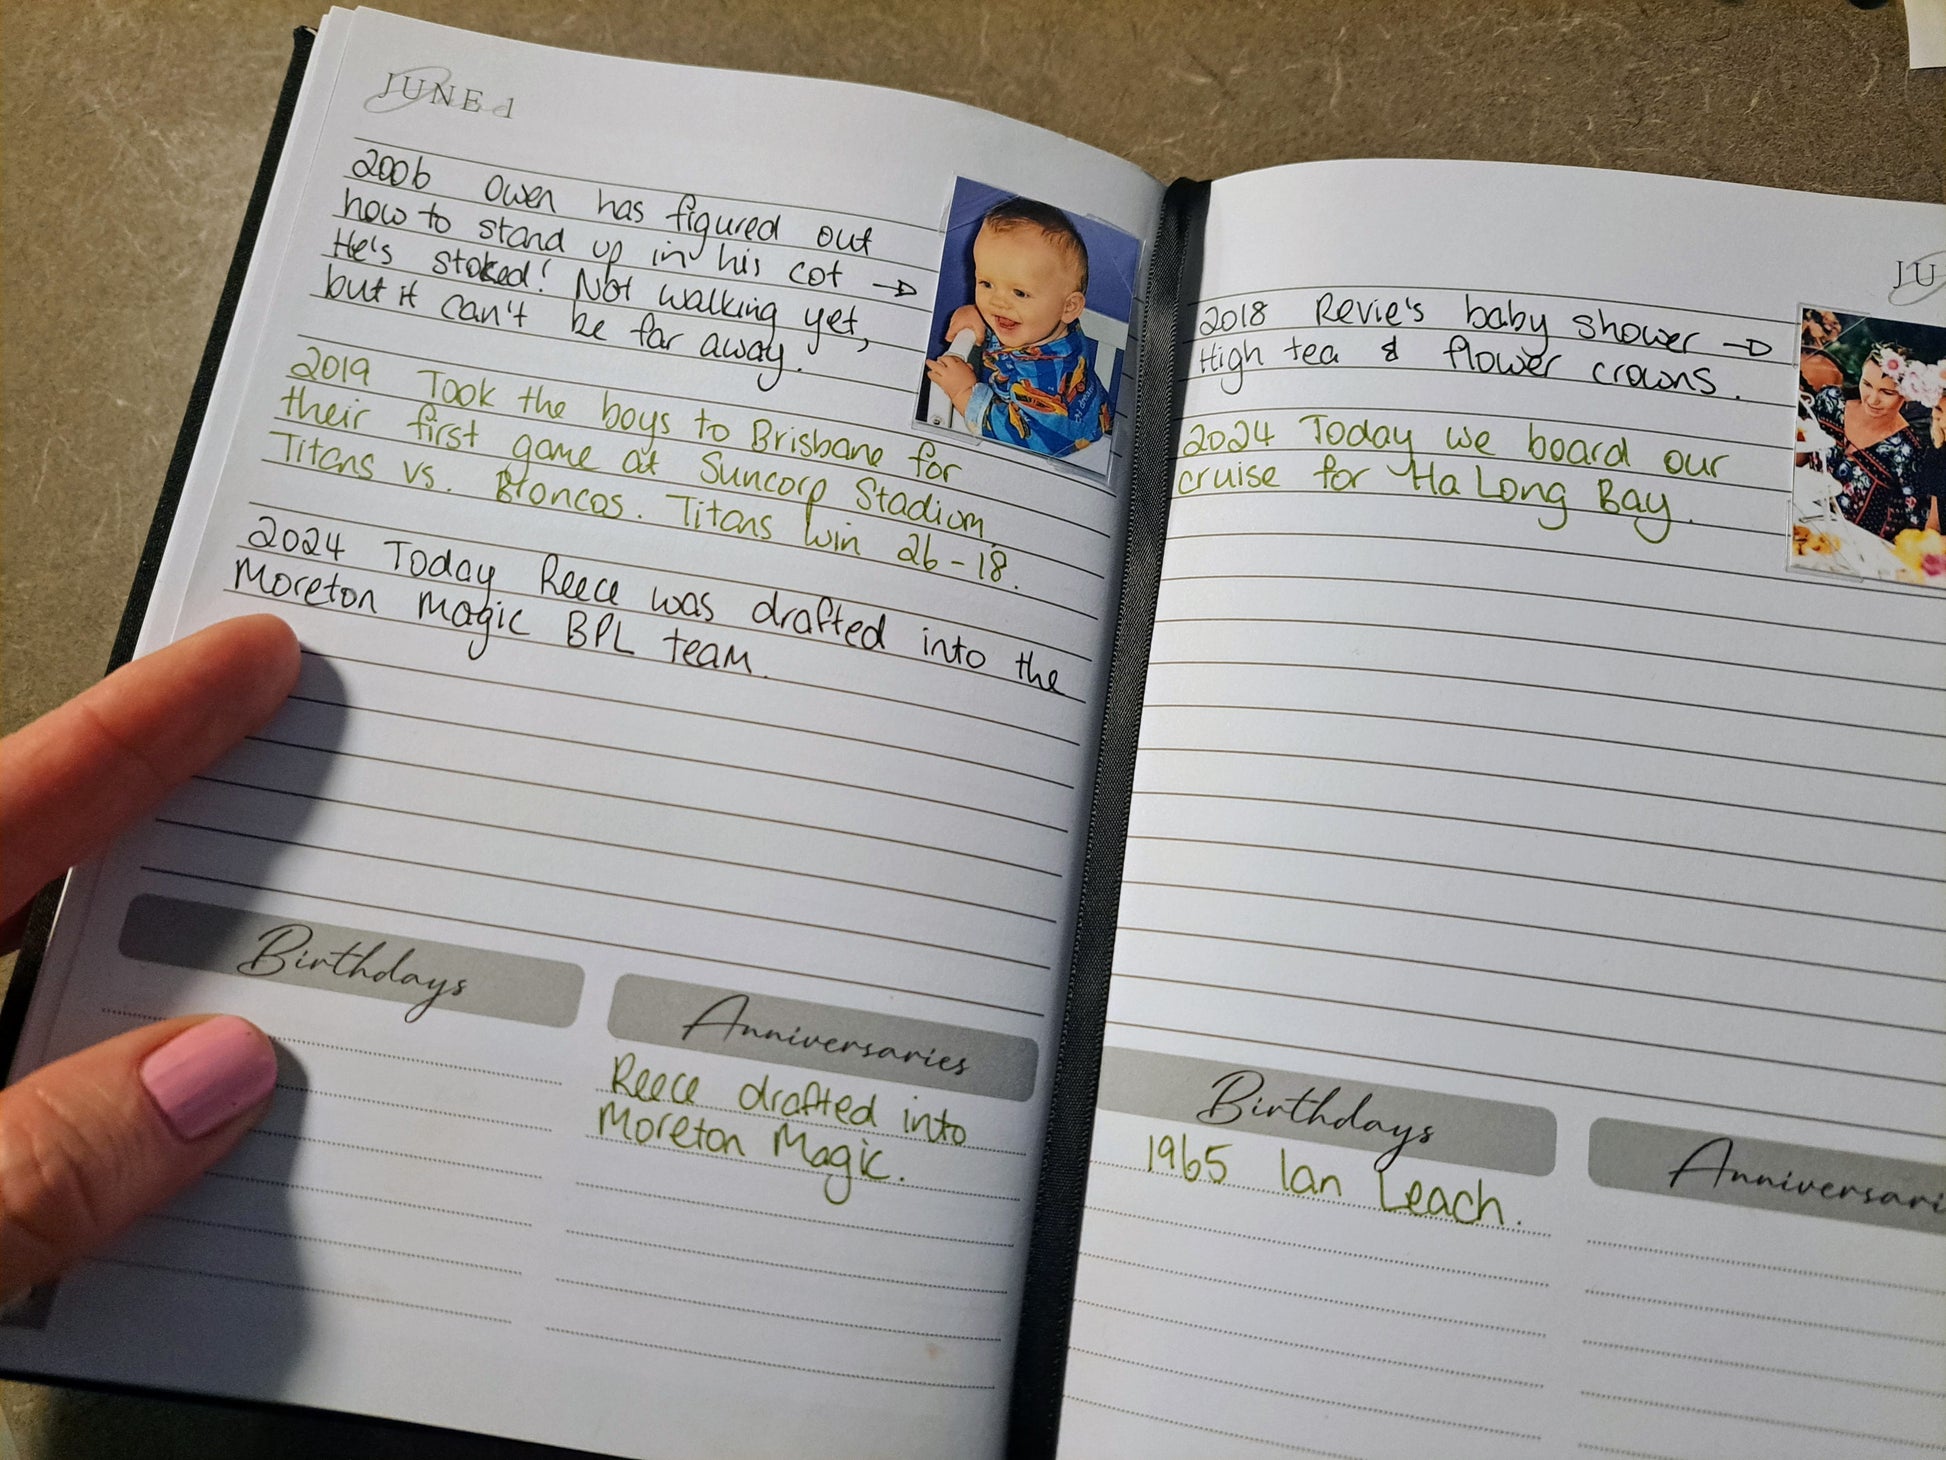 JUNE 1
2006 Owen has figured out
how to stand up in his cot →
He's stoked! Not walking yet,
but it can't be far away.
2019 Took the boys to Brisbane for
their first game at Suncorp Stadium.
Titans vs. Broncos. Titans win 26-18.
2024 Today Reece was drafted into the
Moreton Magic BPL team.
Birthdays
Anniversaries
Reece drafted into
Moreton Magic.
JU
2018 Revie's baby shower →
High tea & flower crowns.
2024 Today we board our
cruise for Ha Long Bay.
Birthdays
1965 Ian Leach.
Anniversari